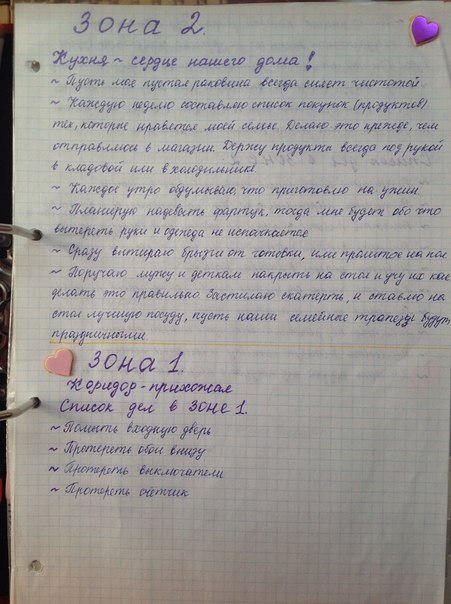 Зона 2.
Кухня ~ сердце нашего дома!
~ Пусть моя пустая раковина всегда сияет чистотой
~ Каждую неделю составляю список покупок (продуктов)
тех, которые нравятся моей семье. Делаю это прежде, чем
отправляюсь в магазин. Держу продукты всегда под рукой
в кладовой или в холодильнике
~ Каждое утро обдумываю, что приготовлю на ужин.
~ Планирую надевать фартук, тогда мне будет обо что
вытереть руки и одежда не испачкается
~ Сразу вытираю брызги от готовки, или пролитое на пол
~ Поручаю мужу и деткам накрыть на стол и учу их как
делать это правильно Застилаю скатерть, и ставлю на
стол лучшую посуду, пусть наши семейные трапезы будут
праздничными.
Зона 1.
Коридор-прихожая
Список дел в Зоне 1.
~ Помыть входную дверь
~ Протереть обои внизу
~ Протереть выключатели
~ Протереть счётчик